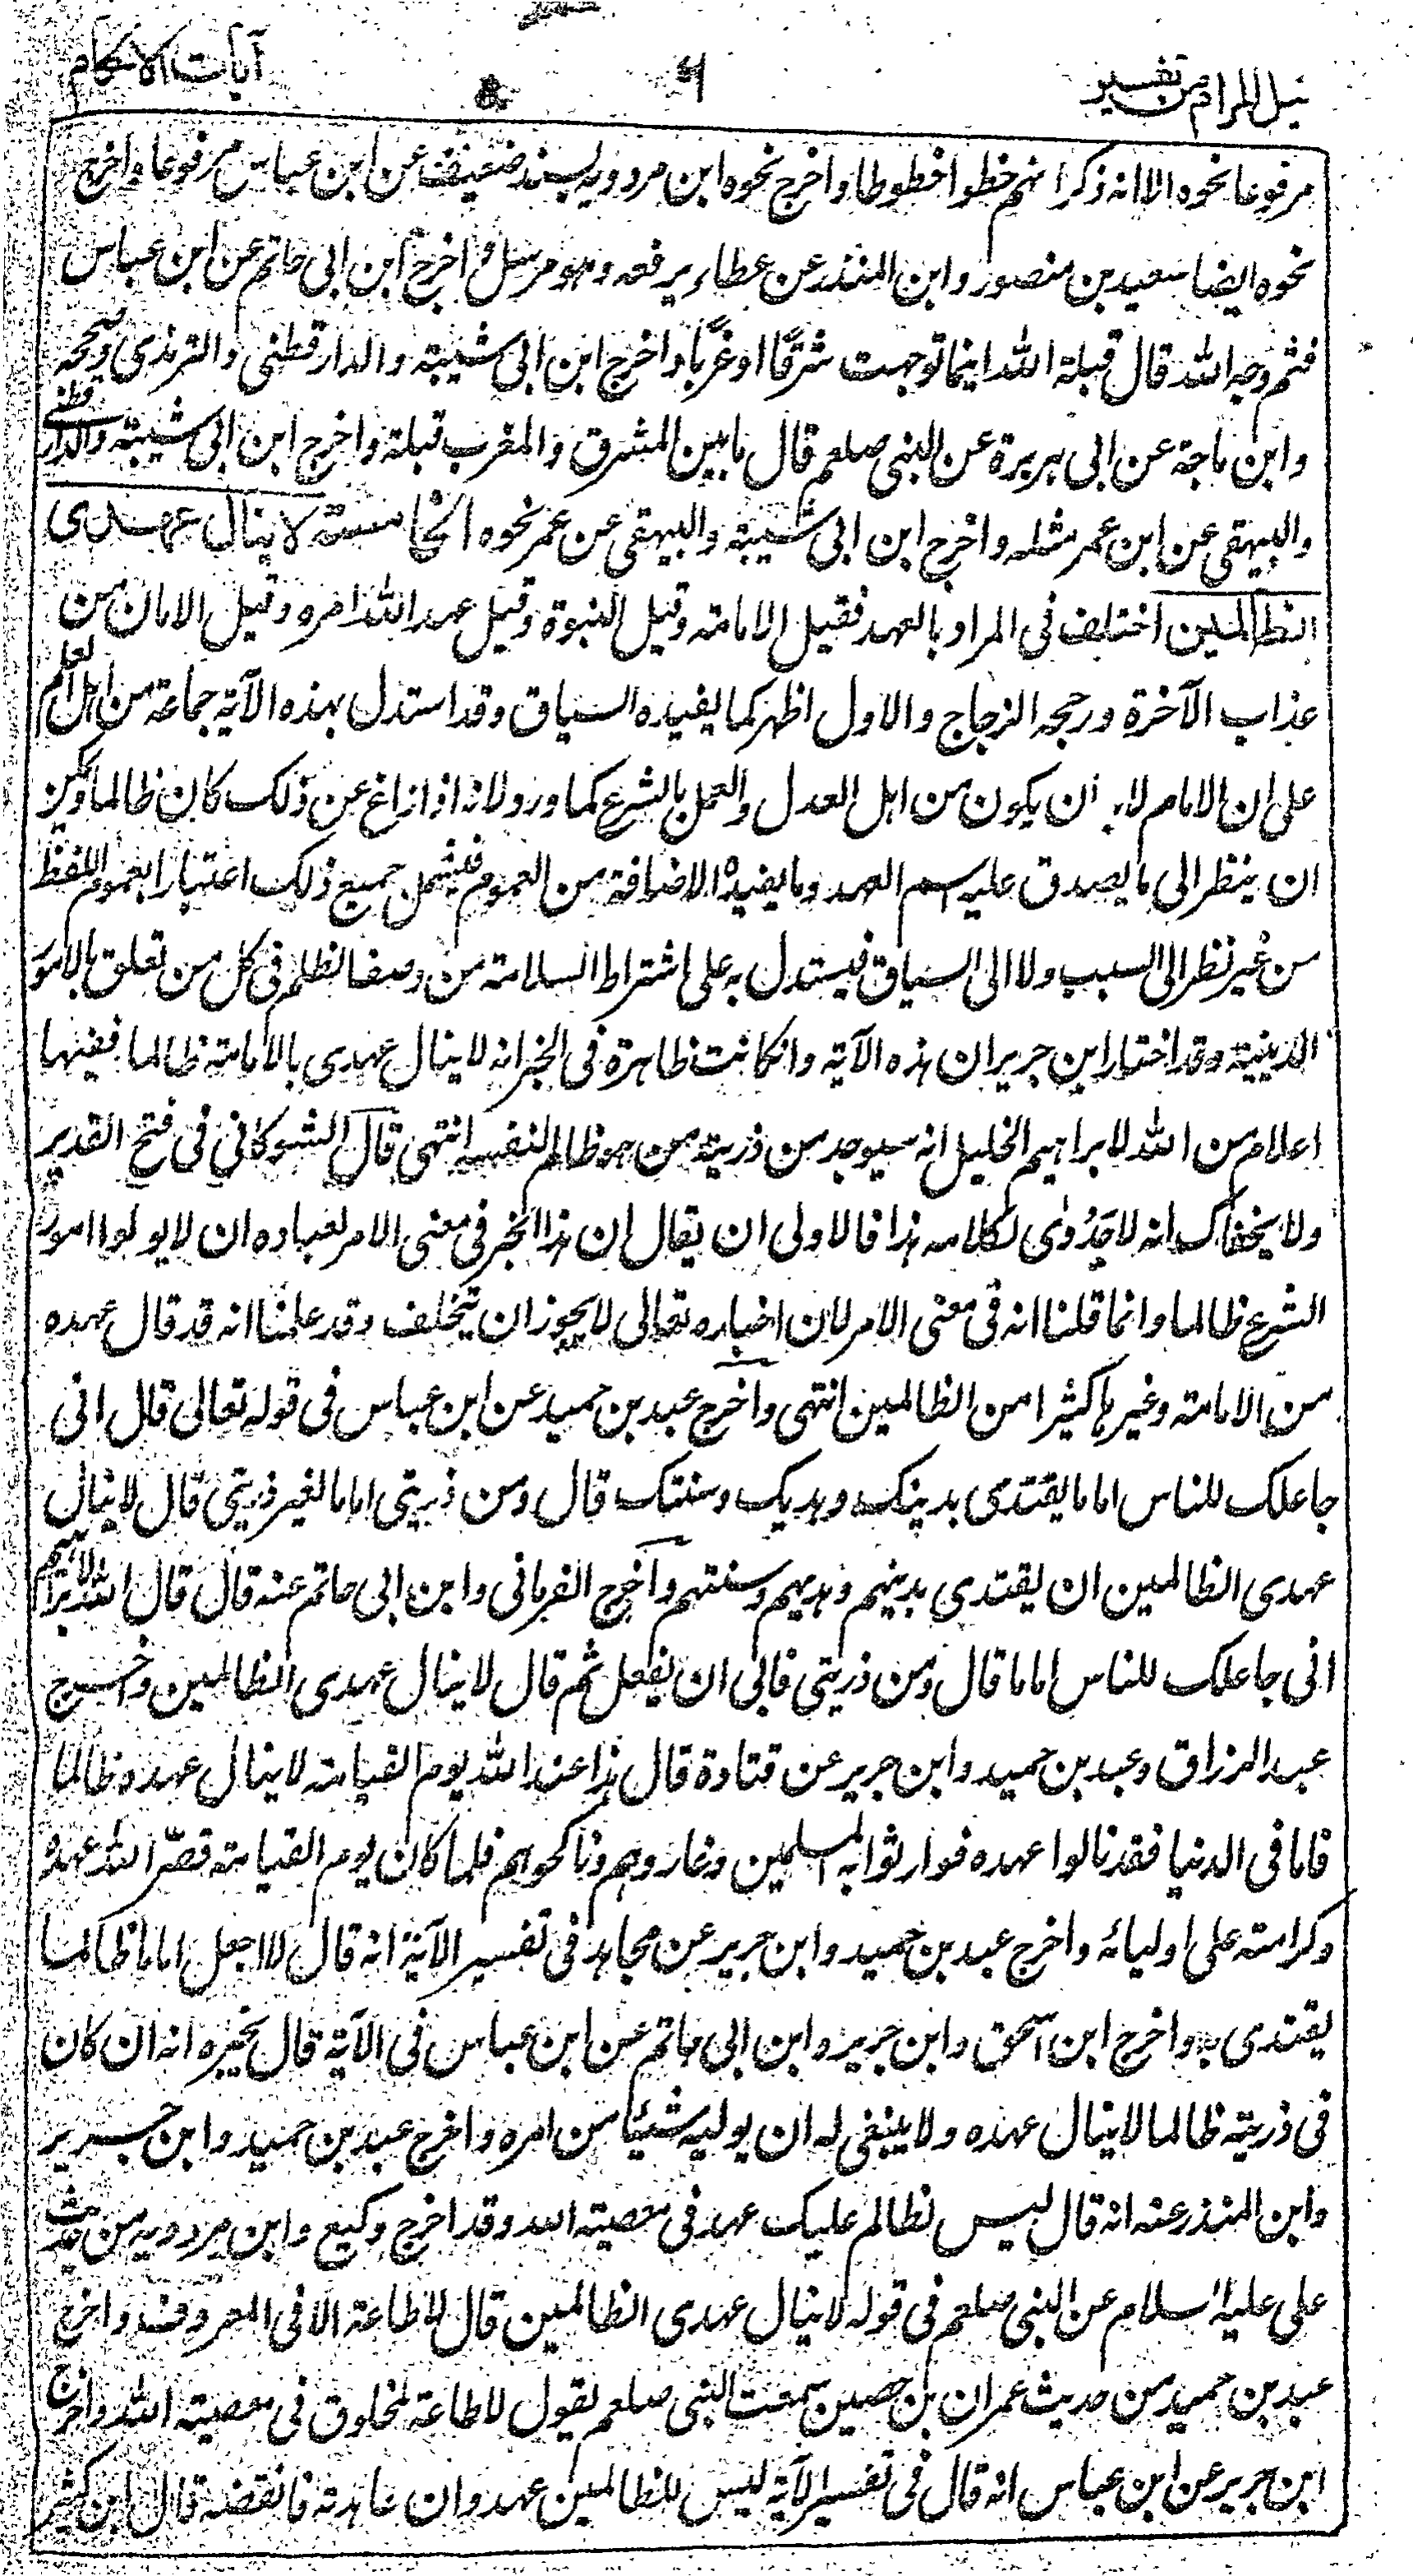 نيل المرام من تفسير ٦ آيات الاحكام
مرفوعا نحوه الا انه ذكر انهم خطوا خطوطا واخرج نحوه ابن مردويه بسند ضعيف عن ابن عباس مرفوعا واخرج
نحوه ايضا سعيد بن منصور وابن المنذر عن عطاء يرفعه وهو مرسل واخرج ابن ابي حاتم عن ابن عباس
فثم وجه الله قال قبلة الله اينما توجهت شرقًا او غربًا واخرج ابن ابي شيبة والدارقطني والترمذي وصححه
وابن ماجة عن ابي هريرة عن النبي صلعم قال ما بين المشرق والمغرب قبلة واخرج ابن ابي شيبة والدارقطني
والبيهقي عن ابن عمر مثله واخرج ابن ابي شيبة والبيهقي عن عمر نحوه الخامسة لا ينال عهدى
الظالمين اختلف في المراد بالعهد فقيل الامامة وقيل النبوة وقيل عهد الله امره وقيل الامان من
عذاب الآخرة ورجحه الزجاج والاول اظهر كما يفيده السياق وقد استدل بهذه الآية جماعة من اهل العلم
على ان الامام لابد ان يكون من اهل العدل والعمل بالشرع كما ورد لانه اذا زاغ عن ذلك كان ظالما ويمكن
ان ينظر الى ما يصدق عليه اسم العهد وما يفيده الاضافة من العموم فيشمل جميع ذلك اعتبارا بعموم اللفظ
من غير نظر الى السبب ولا الى السياق فيستدل به على اشتراط السلامة من وصف الظلم في كل من تعلق بالامور
الدينية وقد اختار ابن جرير ان هذه الآية وانكانت ظاهرة في الخبر انه لا ينال عهدى بالامامة ظالما ففيها
اعلام من الله لابراهيم الخليل انه سيوجد من ذريته من هو ظالم لنفسه انتهى قال الشوكاني في فتح القدير
ولا يخفاك انه لا جَدْوٰى لكلامه هذا فالاولى ان يقال ان هذا الخبر في معنى الامر لعباده ان لا يولوا امور
الشرع ظالما وانما قلنا انه في معنى الامر لان اخباره تعالى لا يجوز ان يتخلف وقد علمنا انه قد نال عهده
من الامامة وغيرها كثيرا من الظالمين انتهى واخرج عبد بن حميد عن ابن عباس في قوله تعالى قال انى
جاعلك للناس اماما يقتدى بدينك وهديك وسنتك قال ومن ذريتي اماما لغير ذريتي قال لا ينال
عهدى الظالمين ان يقتدى بدينهم وهديهم وسنتهم واخرج الفريابي وابن ابي حاتم عنه قال قال الله لابراهيم
انى جاعلك للناس اماما قال ومن ذريتي فابى ان يفعل ثم قال لا ينال عهدى الظالمين واخرج
عبد الرزاق وعبد بن حميد وابن جرير عن قتادة قال هذا عند الله يوم القيامة لا ينال عهده ظالما
فاما في الدنيا فقد نالوا عهده فوارثوا به المسلمين وغازوهم وناكحوهم فلما كان يوم القيامة قصّر الله عهده
وكرامته على اوليائه واخرج عبد بن حميد وابن جرير عن مجاهد في تفسير الآية انه قال لا اجعل اماما ظالما
يقتدى به واخرج ابن اسحق وابن جرير وابن ابي حاتم عن ابن عباس في الآية قال يخبره انه ان كان
في ذريته ظالما لا ينال عهده ولا ينبغي له ان يوليه شيئا من امره واخرج عبد بن حميد وابن جرير
وابن المنذر عنه انه قال ليس لظالم عليك عهد في معصية الله وقد اخرج وكيع وابن مردويه من حديث
على عليه السلام عن النبي صلعم في قوله لا ينال عهدى الظالمين قال لا طاعة الا في المعروف واخرج
عبد بن حميد من حديث عمران بن حصين سمعت النبي صلعم يقول لا طاعة لمخلوق في معصية الله واخرج
ابن جرير عن ابن عباس انه قال في تفسير الآية ليس للظالمين عهد وان عاهدته فانقضه قال ابن كثير